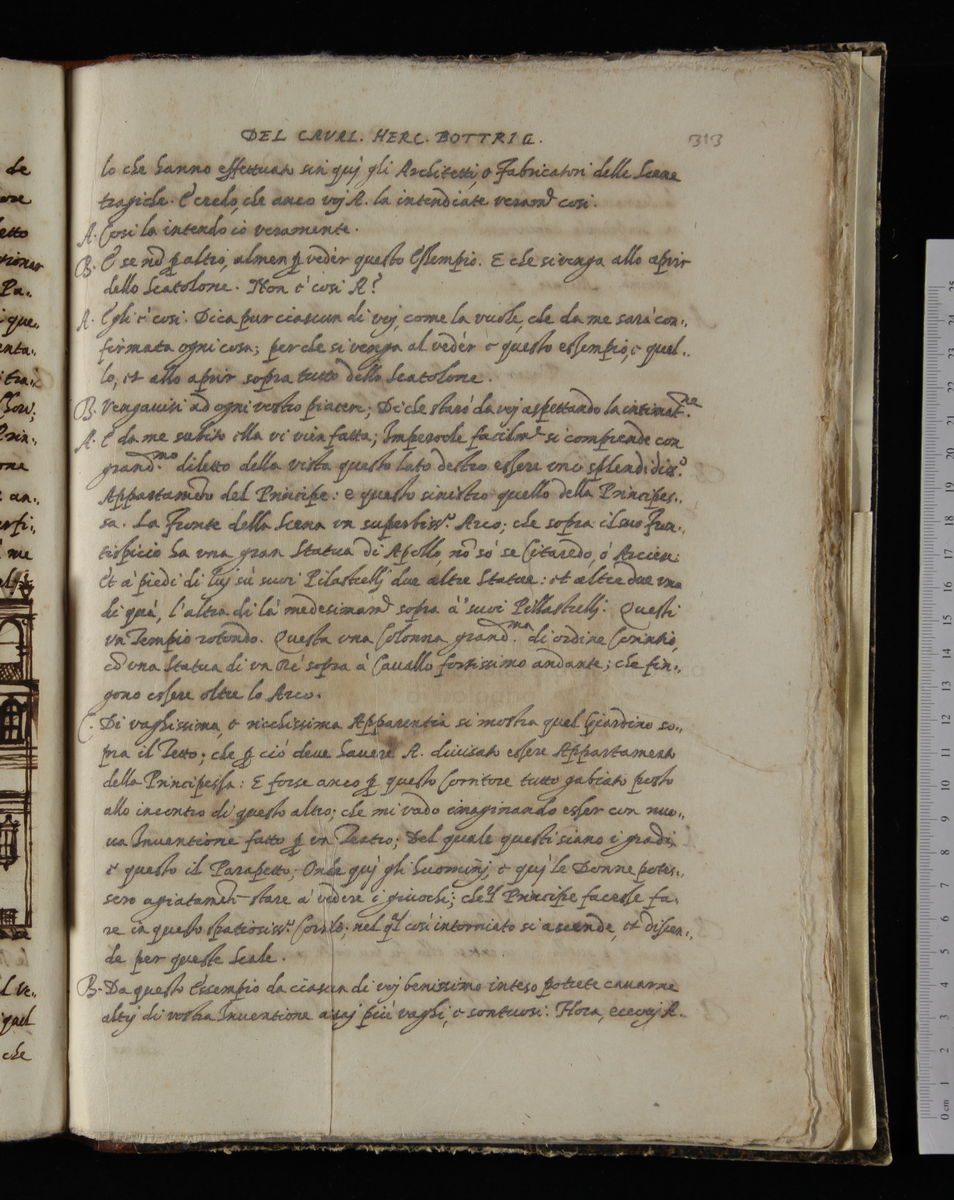 DEL CAVAL. HERC. BOTTRIG. 313
lo che hanno effettuato sin quì gli Architetti, o Fabricatori delle Scene
tragiche. E credo, che anco voj A. la intendiate veramte cosi.
A. Cosi la intendo io veramente.
B. E se nō ꝑ altro, almen ꝑ vedér questo Essempio. E che si venga allo aprir
dello Scatolone. Non è cosi A?
A. Egli è cosi. Dica pur ciascun di voj, come la vuole, che da me sarà con..
firmata ogni cosa; perche si venga al vedér e questo essempio, e quel..
lo, et allo aprir sopra tutto dello Scatolone.
B. Vengavisi ad ogni vostro piacere; Di che starò da voj aspettando la intimatne.
A. E da me subito ella vi vien fatta; Imperoche facilmte si comprende con
grandmo diletto della vista questo lato destro essere uno splendidiss.o
Appartamēto del Principe: e questo sinistro quello della Principes..
sa. La Fronte della Scena vn superbiss.o Arco; che sopra il suo Fron..
tispicio ha vna gran Statua di Apollo, nō sò se Citaredo, ò Arcier:
Et à piedi di luj sù suoi Pilastrellj due altre Statue: et altre due vna
di quà, l'altra di là medesimamte sopra à suoi Pillastrellj. Questi
vn Tempio rotondo. Questa vna Colonna grandma di ordine Corintio,
ed vna Statua di vn Rè sopra à Cavallo fortissimo andante; che fin..
gono essere oltre lo Arco.
C. Di vaghissima, e ricchissima Apparentia si mostra quel Giardino so..
pra il Tetto; che ꝑ ciò deve havere A. divisato essere Appartamento
della Principessa: E forse anco ꝑ questo Corritore tutto gabiato posto
allo incontro di questo altro; che mi vado imaginando esser con nuo..
va Inventione fatto ꝑ vn Teatro; Del quale questi siano i gradi,
e questo il Parapetto; Onde quj gli Huominj, e quj le Donne potes..
sero agiatamēte stare à vedere i giuochi; che'l Principe facesse fa..
re in questo spatiosiss.o Cortile; nel ql cosi intorniato si ascende, et discen..
de per queste Scale.
B. Da questo Essempio da ciascun di voj benissimo inteso potrete cavarne
altrj di vostra Inventione assaj più vaghi, e sontuosi. Hora, eccovj A.